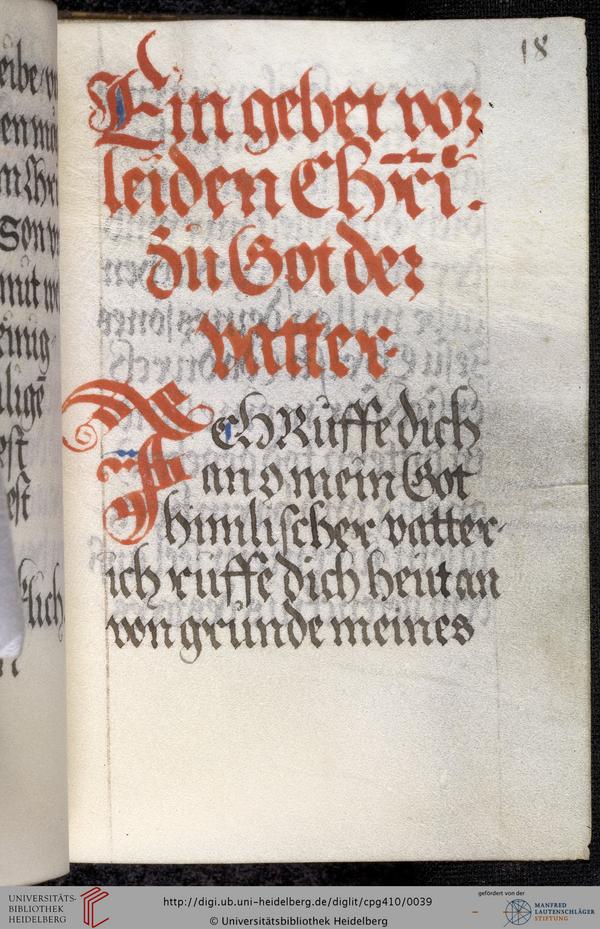 18
Ein gebet vor
leiden Chri.
zu Got der
vatter.
Ich Ruffe dich
an o mein Got
himlischer vatter
ich ruffe dich heut an
von grunde meines
UNIVERSITÄTS-
BIBLIOTHEK
HEIDELBERG
http://digi.ub.uni-heidelberg.de/diglit/cpg410/0039
© Universitätsbibliothek Heidelberg
gefördert von der
MANFRED
LAUTENSCHLÄGER
STIFTUNG